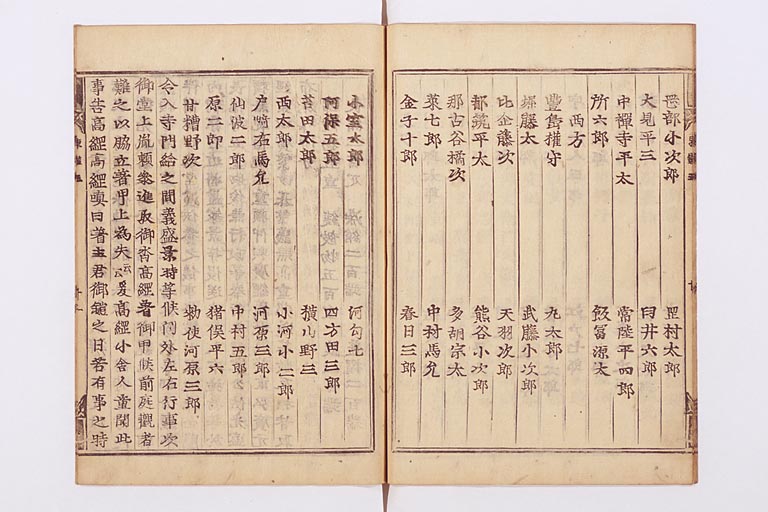 罡部小次郎　罡村太郎
大見平三　臼井六郎
中禪寺平太　常陸平四郎
所六郎　飯冨源太
豊嶋權守　丸太郎
堀藤太　武藤小次郎
比企藤次　天羽次郎
都筑平太　熊谷小次郎
那古谷橘次　多胡宗太
莱七郎　中村馬允
金子十郎　春日三郎
小室太郎　河匂七
阿保五郎　四方田三郎
苔田太郎　横山野三
西太郎　小河小二郎
戸崎右馬允　河原三郎
仙波二郎　中村五郎
原二郎　猪俣平六
甘糟野次　勅使河原三郎
令入寺門給之間義盛景時等候門外左右行事次
御堂上胤頼參進取御沓高經著御甲候前庭觀者
難之以脇立著甲上為失云云爰高經小舎人童聞此
事告高經高經嗔曰著主君御鎧之日若有事之時